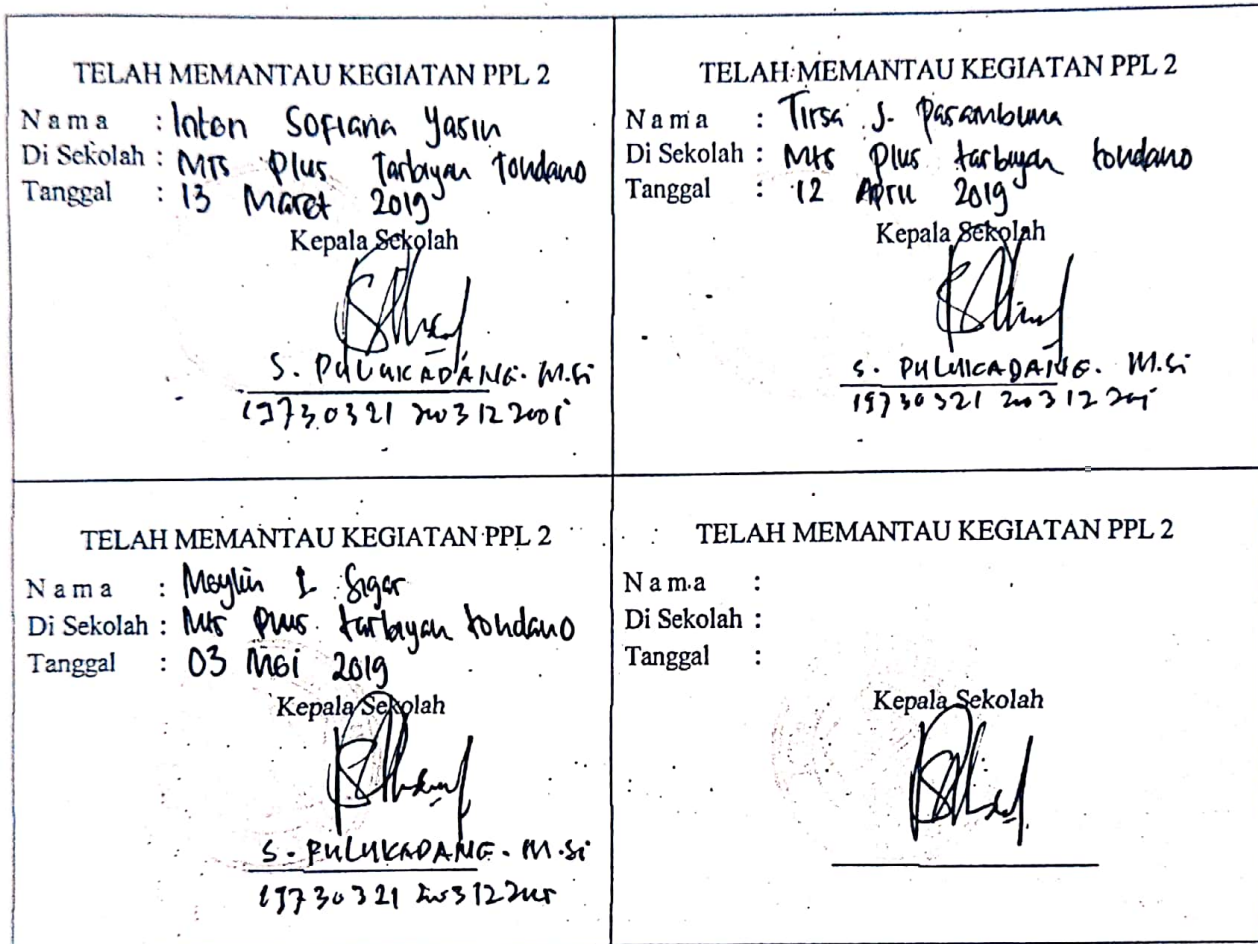 TELAH MEMANTAU KEGIATAN PPL 2
Nama : Inton Sofiana Yasin
Di Sekolah : MTS Plus Tarbiyah Tondano
Tanggal : 13 Maret 2019
Kepala Sekolah
S. PULUKADANG. M.Si
19730321 200312 2001
TELAH MEMANTAU KEGIATAN PPL 2
Nama : Tirsa J. Parambuna
Di Sekolah : Mts Plus tarbiyah tondano
Tanggal : 12 April 2019
Kepala Sekolah
S. PULUKADANG. M.Si
19730321 200312
TELAH MEMANTAU KEGIATAN PPL 2
Nama : Meylin I Sigar
Di Sekolah : Mts Plus tarbiyah tondano
Tanggal : 03 Mei 2019
Kepala Sekolah
S. PULUKADANG. M.Si
19730321 200312
TELAH MEMANTAU KEGIATAN PPL 2
Nama :
Di Sekolah :
Tanggal :
Kepala Sekolah